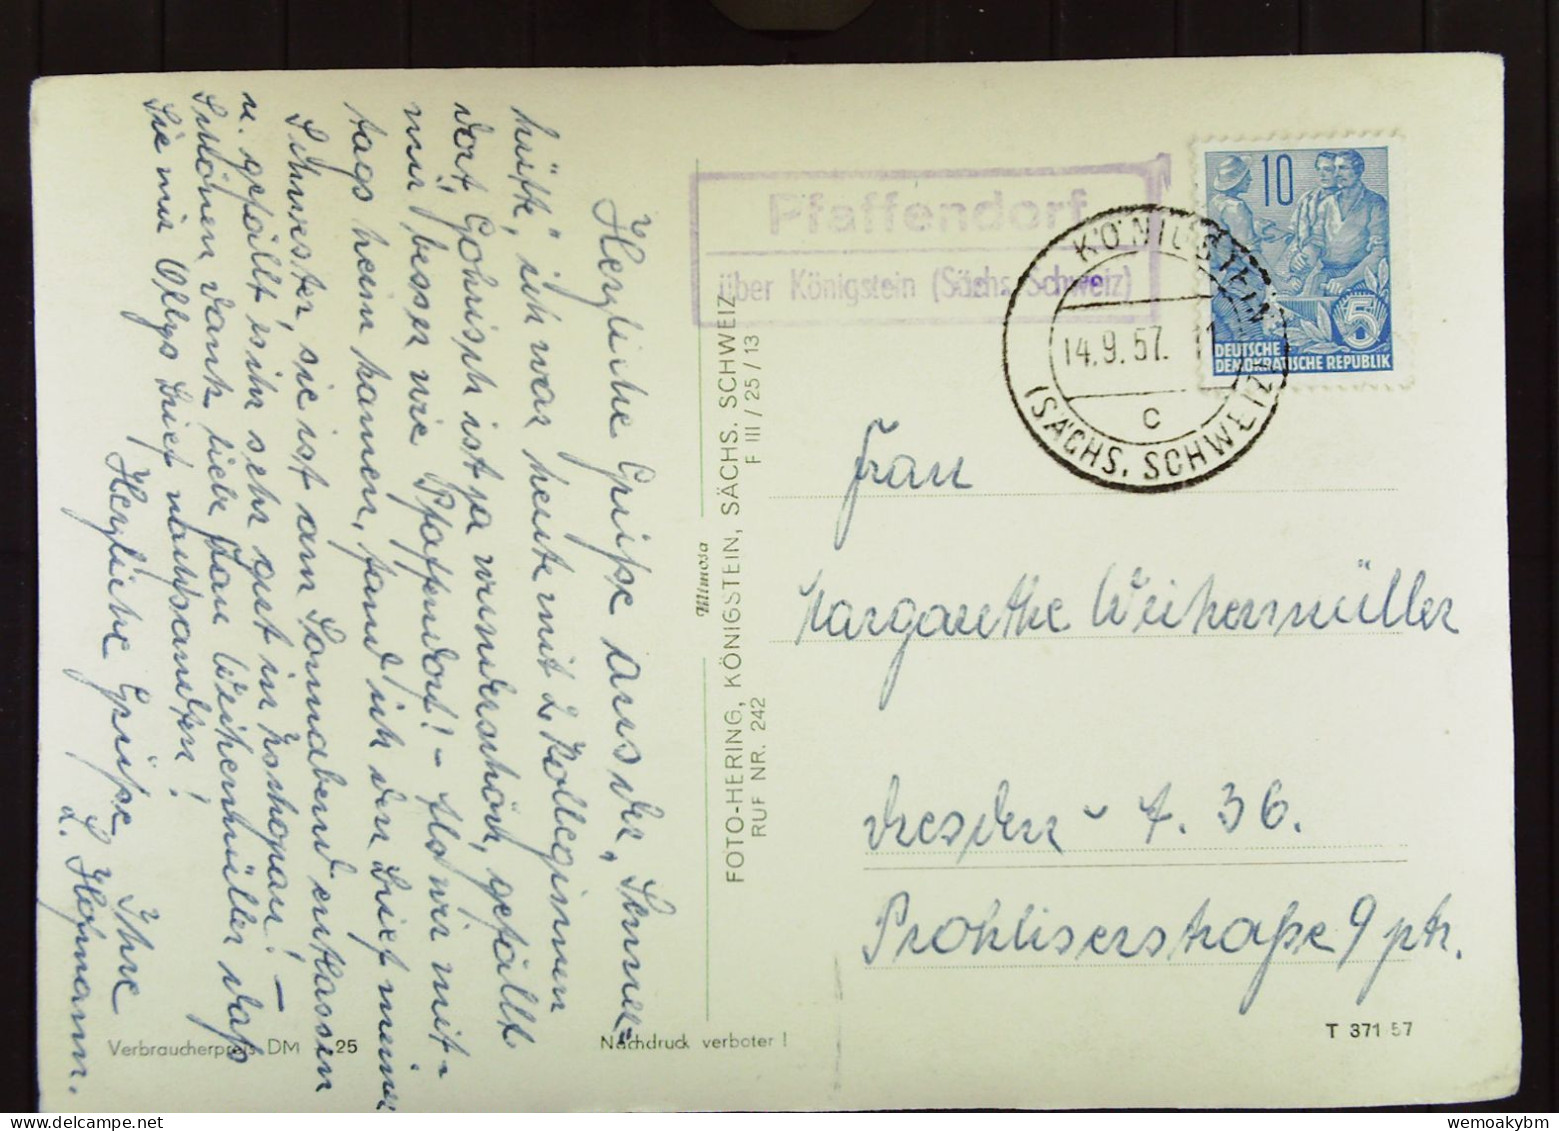 Herzliche Grüße aus der „Sennerhütte," ich war heute mit 2 Kolleginnen
dort, Gohrisch ist ja wunderschön, gefällt
mir besser wie Pfaffendorf! – Als wir mit-
tags heim kamen, fand ich den Brief meiner
Schwester, sie ist am Sonnabend entlassen
u. gefällt es ihr sehr gut in Zschopau! –
Schönen Dank liebe Frau Weihermüller daß
Sie mir Ollys Brief nachsandten!
Herzliche Grüße Ihre
L. Hofmann.
Verbraucherpreis DM 25
Nachdruck verboten!
Mimosa
FOTO-HERING, KÖNIGSTEIN, SÄCHS. SCHWEIZ
RUF NR. 242 F III / 25 / 13
Pfaffendorf
über Königstein (Sächs. Schweiz)
KÖNIGSTEIN
14.9.57.
c
(SÄCHS. SCHWEIZ)
10
5
DEUTSCHE
DEMOKRATISCHE REPUBLIK
Frau
Margarethe Weihermüller
Dresden – A. 36.
Prohliserstraße 9 ptr.
T 371 57
wemoakybm